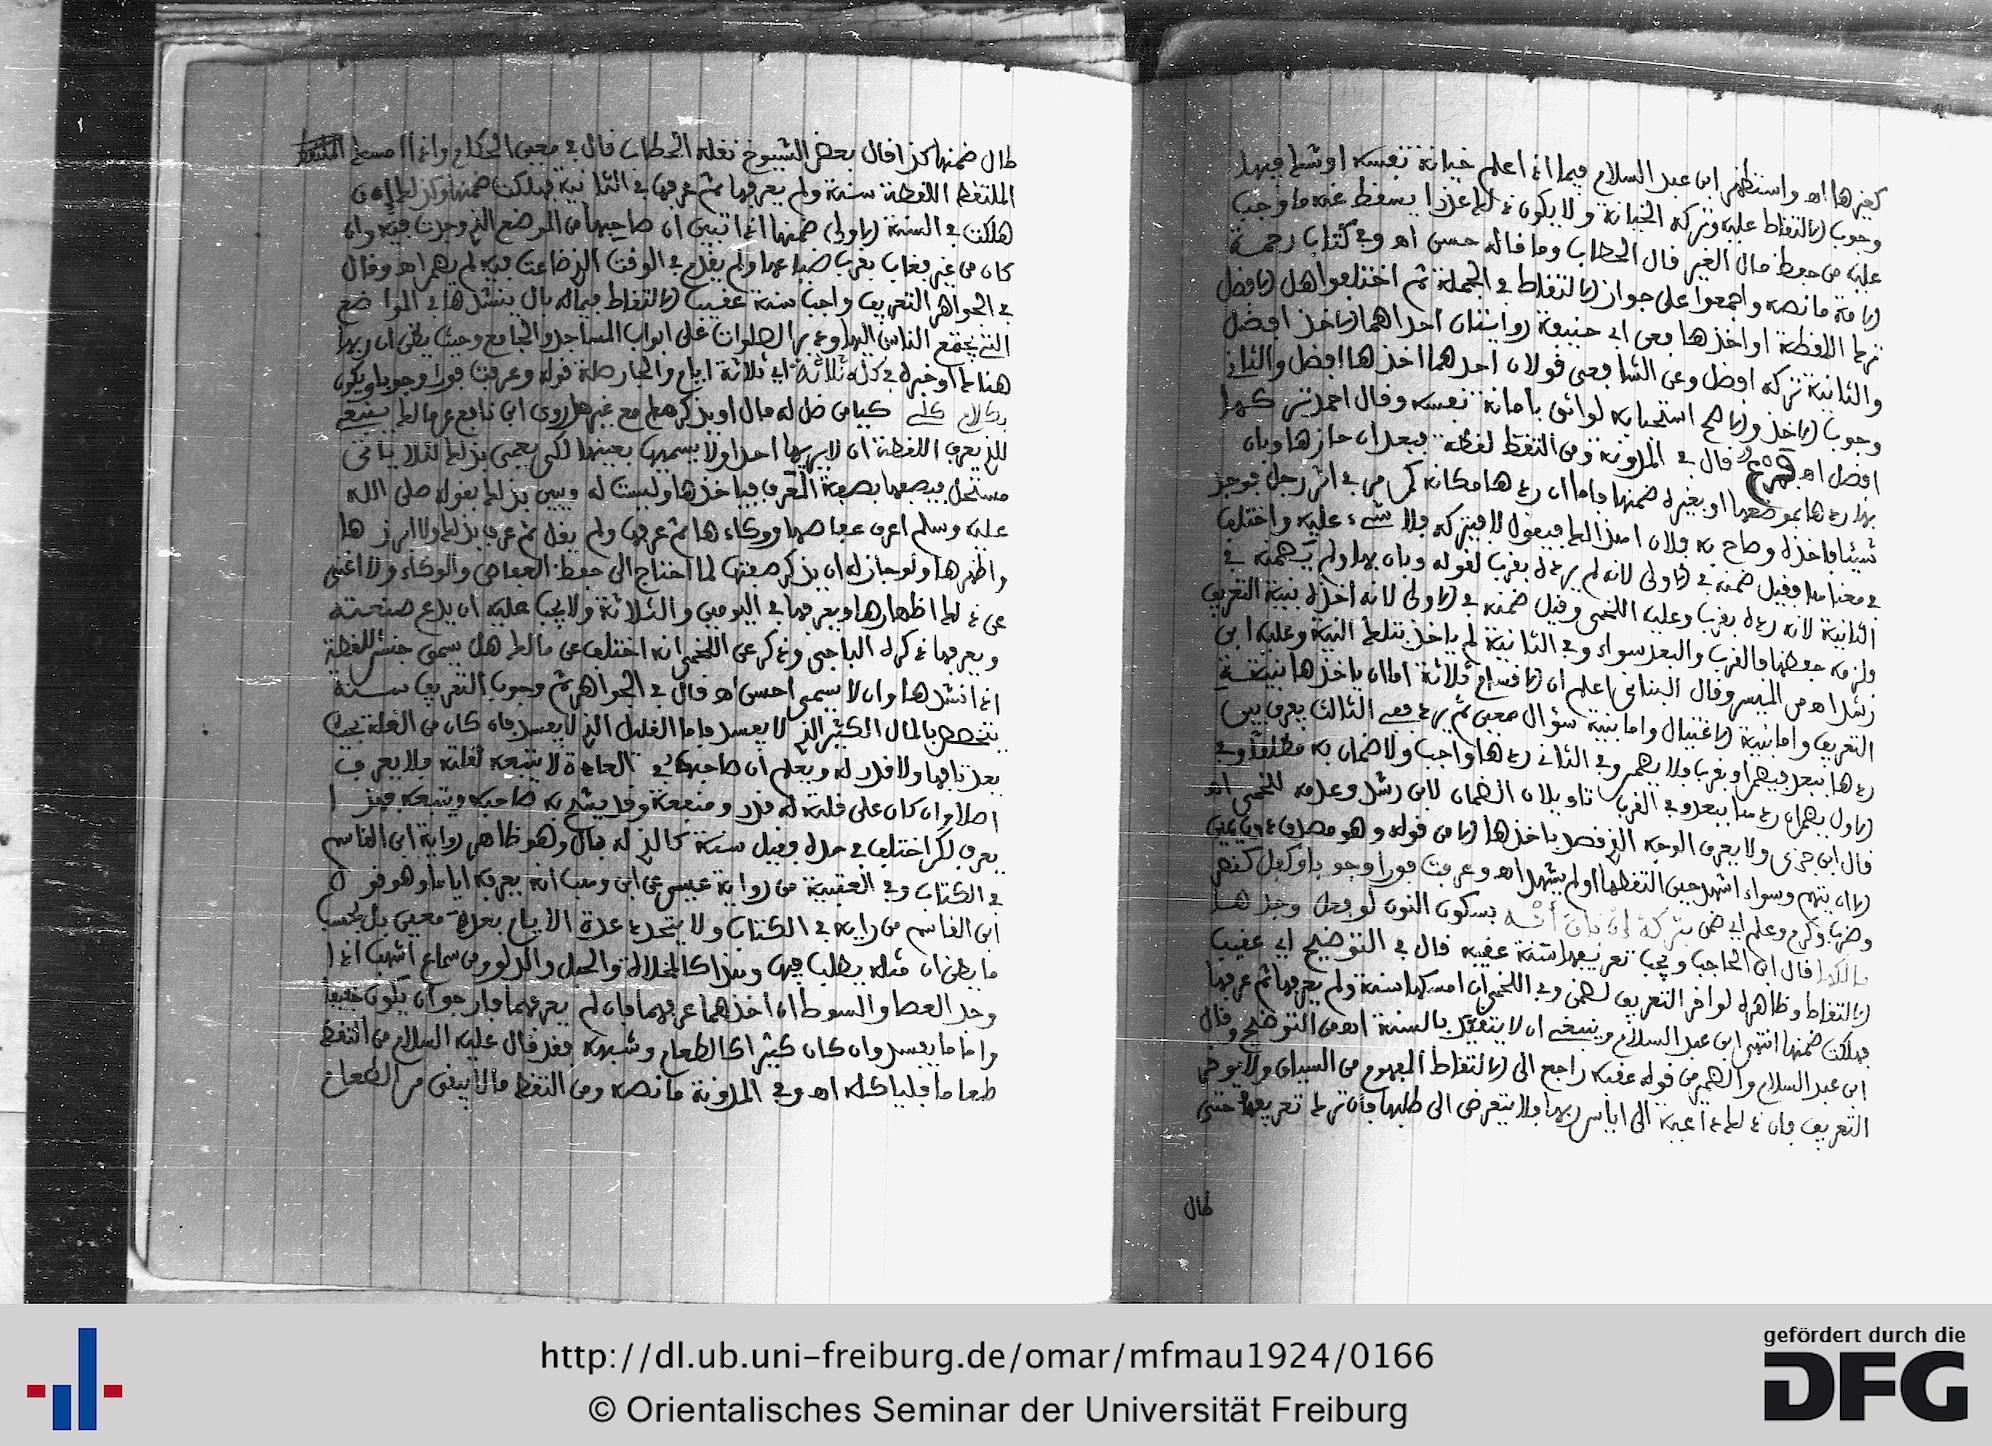 كغيرها اه واستظهر ابن عبد السلام فيما اذا علم خيانة نفسه او شك فيها
وجوب الالتقاط عليه وتركه الخيانة ولا يكون ذلك عذرا يسقط عنه ما وجب
عليه من حفظ مال الغير قال الحطاب وما قاله حسن اه وفي كتاب رحمة
الامة ما نصه واجمعوا على جواز الالتقاط في الجملة ثم اختلفوا هل الافضل
ترك اللقطة او اخذها فعن ابي حنيفة روايتان احداهما الاخذ افضل
والثانية تركه افضل وعن الشافعي قولان احدهما اخذها افضل والثاني
وجوب الاخذ والاصح استحبابه لواثق بامانة نفسه وقال احمد تركها
افضل اه فرع قال في المدونة ومن التقط لقطة فبعد ان حازها وبان
بها ردها بموضعها او بغيره ضمنها فاما ان ردها مكانه كمن مر في اثر رجل فوجد
شيئا فاخذه وصاح به فلان اهذا لك فيقول لا فيتركه فلا شيء عليه واختلف
في معنا فقيل ضمنه في الاولى لانه لم يرده بقرب لقوله وبان بها ولم يضمنه في
الثانية لانه رده بقرب وعليه اللخمي وقيل ضمنه في الاولى لانه أخذه بنية التعريف
ولزمه حفظها فالقرب والبعد سواء وفي الثانية لم ياخذ بتلك النية وعليه ابن
رشد اه من الميسر وقال البناني اعلم ان الاقسام ثلاثة اما ان ياخذها بنية
التعريف واما بنية الاغتيال واما بنية سؤال معين ثم يرد ففي الثالث يفرق بين
ردها ببعد فيضمن او بقرب فلا يضمن وفي الثاني ردها واجب ولا ضمان به مطلقا وفي
الاول يضمن ان ردها ببعد وفي القرب تاويلان الضمان لابن رشد وعدمه للخمي اه
قال ابن جزي ولا يعرف الوجه الذي قصد باخذها الا من قوله وهو مصدق دون يمين
الا ان يتهم وسواء اشهد حين التقطها او لم يشهد اه وعرفت فورا وجوبا وكفل كنصر
وضرب وكرم وعلم اي ضمن بتركه بسكون النون لو فعل وجد هـ
مالكها قال ابن الحاجب ويجب تعريفها سنة عقيبه قال في التوضيح اي عقيب
الالتقاط وظاهره لو اخر التعريف لضمن وفي اللخمي ان امسكها سنة ولم يعرفها ثم عرفها
فهلكت ضمنها انتهى ابن عبد السلام وينبغي ان لا يتقيد بالسنة اه من التوضيح وقال
ابن عبد السلام والضمير من قوله عقبه راجع الى الالتقاط المفهوم من السياق ولا يؤخر
التعريف فان ذلك داعية الى اياس ربها فلا يتعرض الى طلبها فان ترك تعريفها حتى
طال
طال ضمنها كذا قال بعض الشيوخ نقله الحطاب قال في معين الحكام واذا امسك
الملتقط اللقطة سنة ولم يعرفها ثم عرفها في الثانية فهلكت ضمنها وكذلك ان
هلكت في السنة الاولى ضمنها اذا تبين ان صاحبها من الموضع الذي وجدت فيه وان
كان من غيره فغاب بقرب ضياعها ولم يقدم في الوقت الذي ضاعت فيه لم يضمن اه وقال
في الجواهر التعريف واجب سنة عقيب الالتقاط فيما له بال ينشدها في المواضع
التي يجتمع الناس اليها وعند الصلوات على ابواب المساجد والجامع وحيث يظن ان ربها
هناك او خبره في كل ثلاثة اي ثلاثة ايام والجار صلة قوله وعرفت فورا وجوبا ويكون
كمن ضل له مال او بذكرها مع غيرها روى ابن نافع عن مالك ينبغي
للذي يعرف اللقطة ان لا يريها احدا ولا يسميها بعينها لكي يعمي بذلك لئلا ياتي
مستحل فيصفها بصفة المعرف فياخذها وليست له ويبين بذلك بقوله صلى الله
عليه وسلم اعرف عفاصها ووكاءها ثم عرفها ولم يقل ثم عرف بذلك ولا ابرزها
واظهرها ولو جاز له ان يذكر صفتها لما احتاج الى حفظ العفاص والوكاء ولا اغنى
عن ذلك اظهارها ويعرفها في اليومين والثلاثة ولا يجب عليه ان يدع صنعته
ويعرفها ذكره الباجي وذكر عن اللخمي انه اختلف عن مالك هل يسمى جنس اللقطة
اذا انشدها وان لا يسمى احسن اه قال في الجواهر ثم وجوب التعريف سنة
يتخصص بالمال الكثير الذي لا يفسد فاما القليل الذي لا يفسد فان كان من القلة بحيث
يعد تافها ولا قدر له ويعلم ان صاحبه في العادة لا يتبعه لقلته فلا يعرف
اصلا وان كان على قلته له قدر ومنفعة وقد يشح به صاحبه ويتبعه فهذا
يعرف لكن اختلف في حده وقيل سنة كالذي له بال وهو ظاهر رواية ابن القاسم
في الكتاب وفي العتبية من رواية عيسى عن ابن وهب انه يعرفه اياما وهو قول
ابن القاسم من رايه في الكتاب ولا يتحدد عدة الايام بعدد معين بل بحسب
ما يظن ان مثله يطلب فيها وهذا كالمخلاة والحبل والدلو ومن سماع اشهب اذا
وجد العصا والسوط ان أخذهما عرفهما فان لم يعرفهما فارجو ان يكون خفيفا
واما ما يفسد وان كان كثيرا كالطعام وشبهه فقد قال عليه السلام من التقط
طعاما فلياكله اه وفي المدونة ما نصه ومن التقط ما لا يبقى من الطعام
http://dl.ub.uni-freiburg.de/omar/mfmau1924/0166
© Orientalisches Seminar der Universität Freiburg
gefördert durch die
DFG